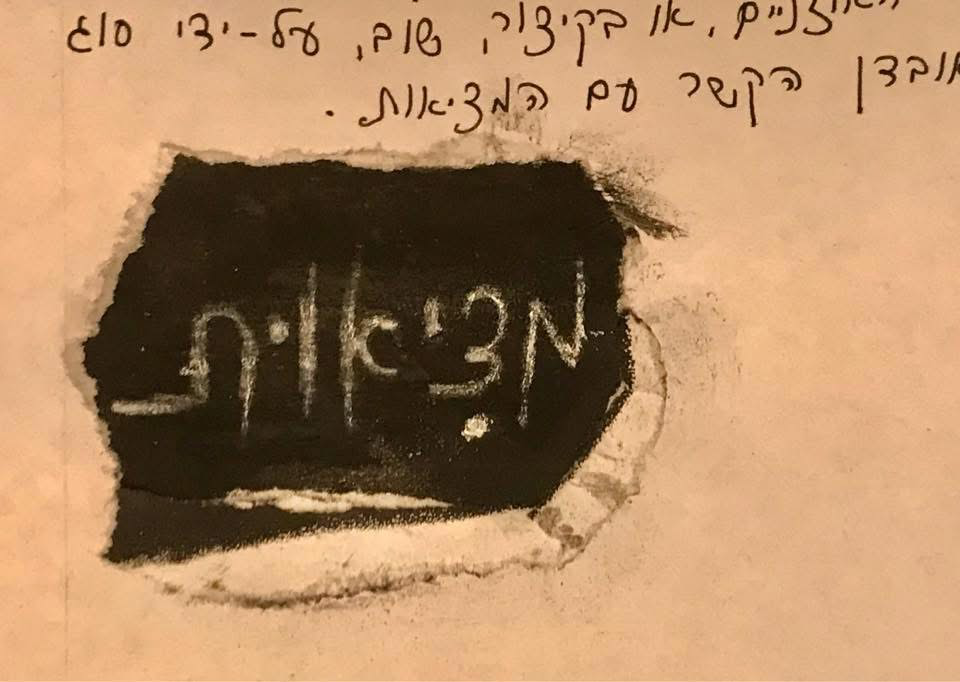 האוזניים, או בקיצור, שוב, על-ידי סוג
אובדן הקשר עם המציאות.
מציאות